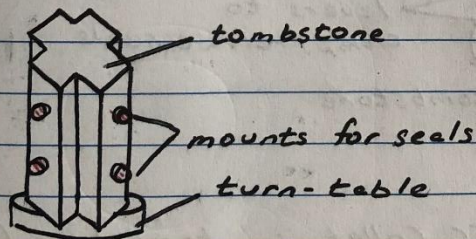 tombstone
mounts for seals
turn-table